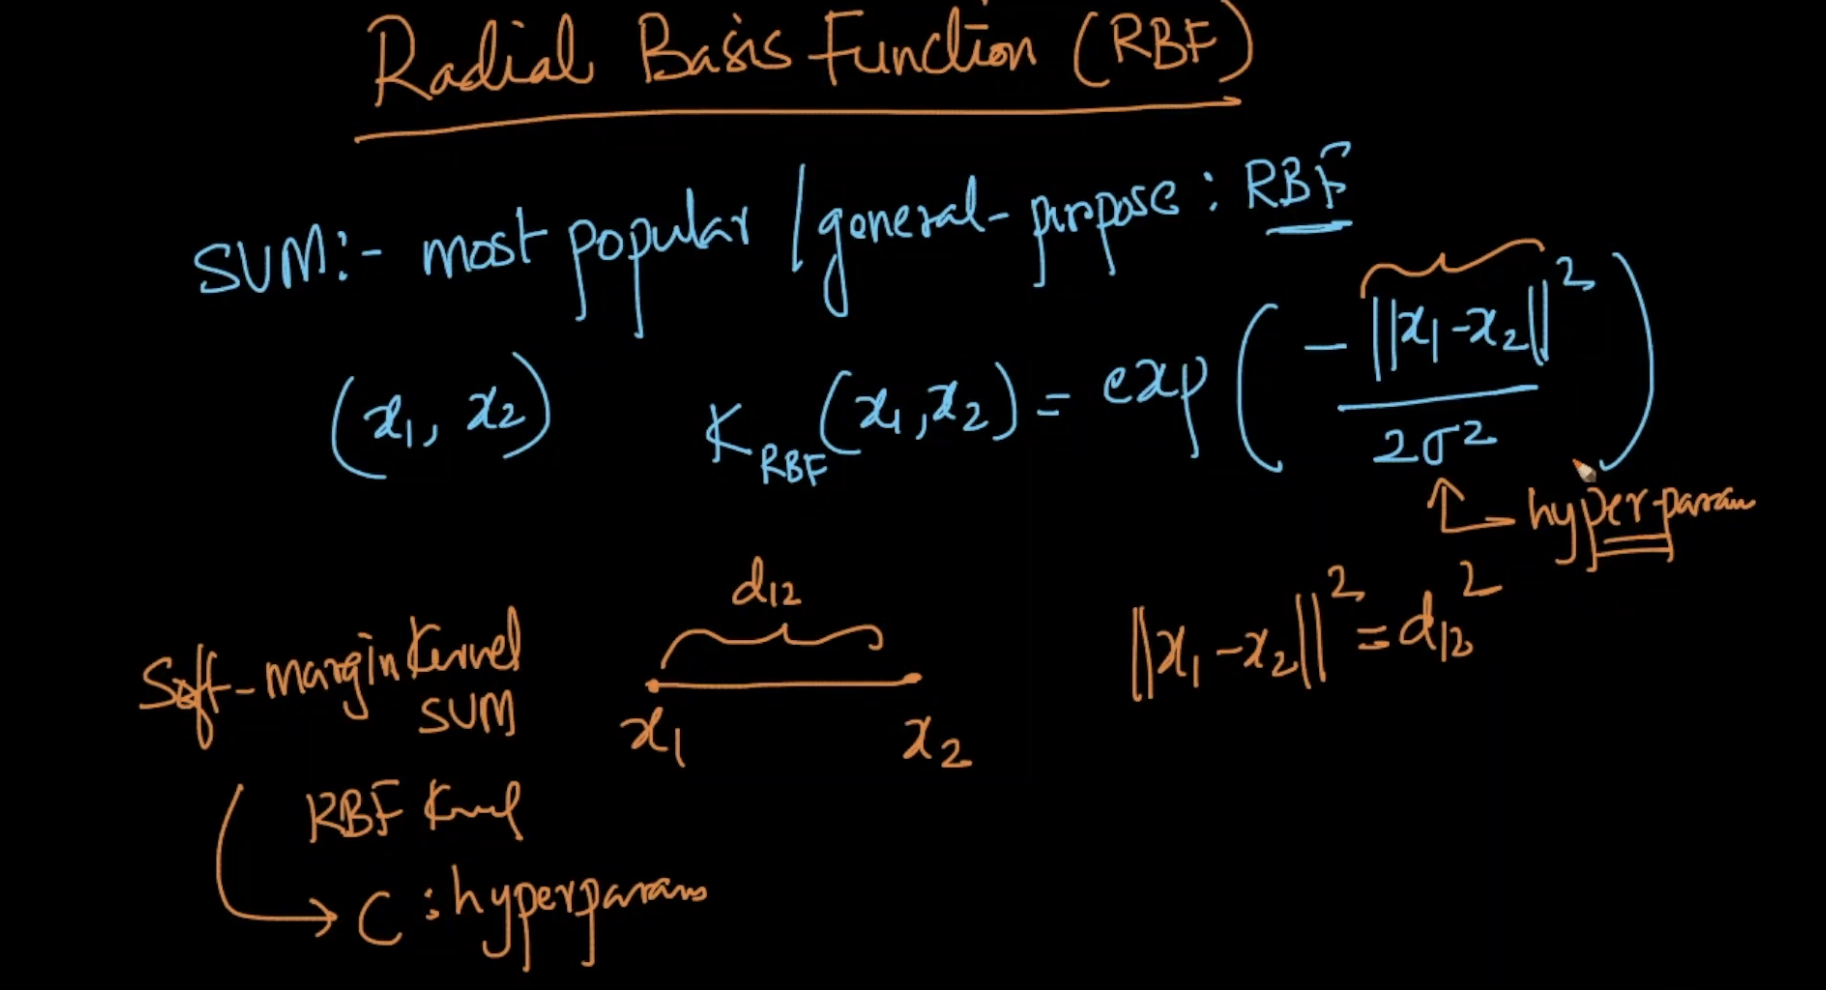 Radial Basis Function (RBF)
SVM:- most popular / general-purpose : RBF
(x₁, x₂) K_RBF (x₁, x₂) = exp ( -||x₁-x₂||² / 2σ² )
hyper-param
d₁₂
||x₁-x₂||² = d₁₂²
Soft-margin Kernel
SVM
x₁ x₂
RBF Kernel
C : hyperparams